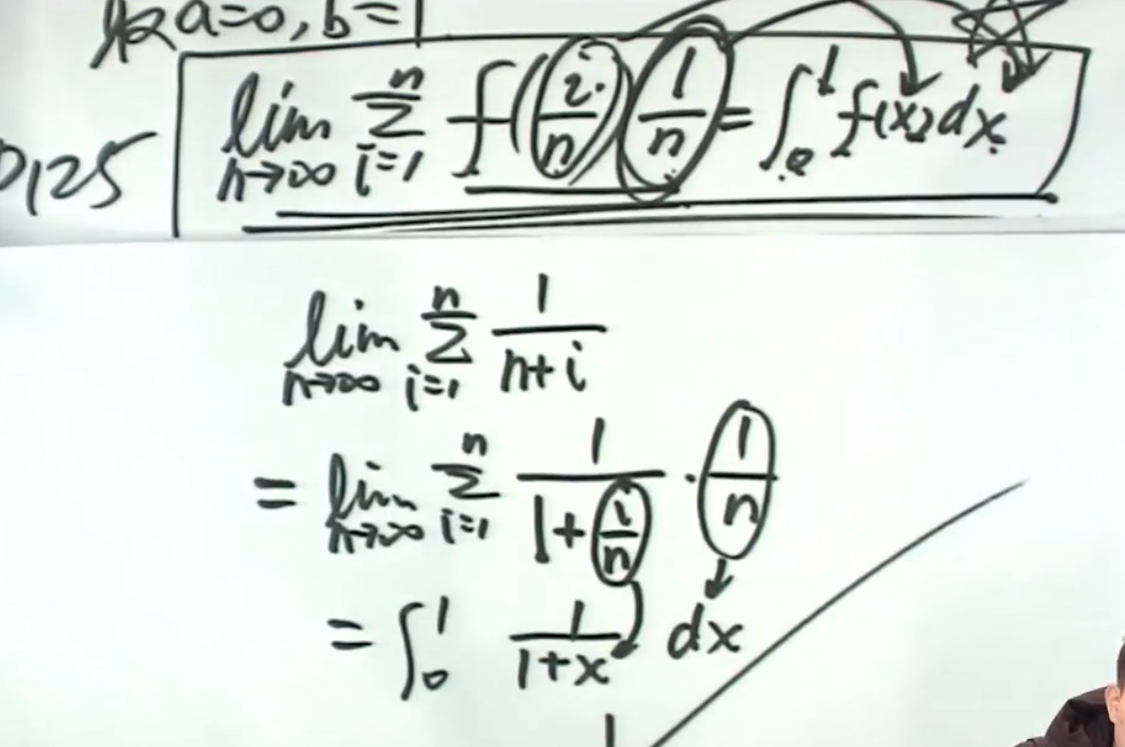 取a=0, b=1
P125
lim_{n→∞} Σ_{i=1}^{n} f(i/n) 1/n = ∫_0^1 f(x)dx
lim_{n→∞} Σ_{i=1}^{n} 1/(n+i)
= lim_{n→∞} Σ_{i=1}^{n} 1/(1+i/n) · 1/n
= ∫_0^1 1/(1+x) dx